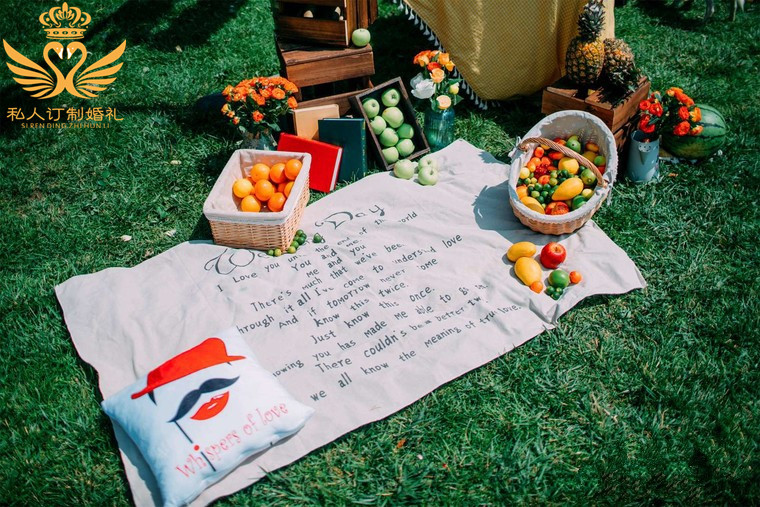 私人订制婚礼
SI REN DING ZHI HUN LI
Day
I Love you until the end of the world
You and me
There's me and you
much that we've been
through it all I've come to understand love
And if tomorrow never come
know this twice
Just know this once
knowing you has made me able to
There couldn't be a better
we all know the meaning of true love.
Whispers of love